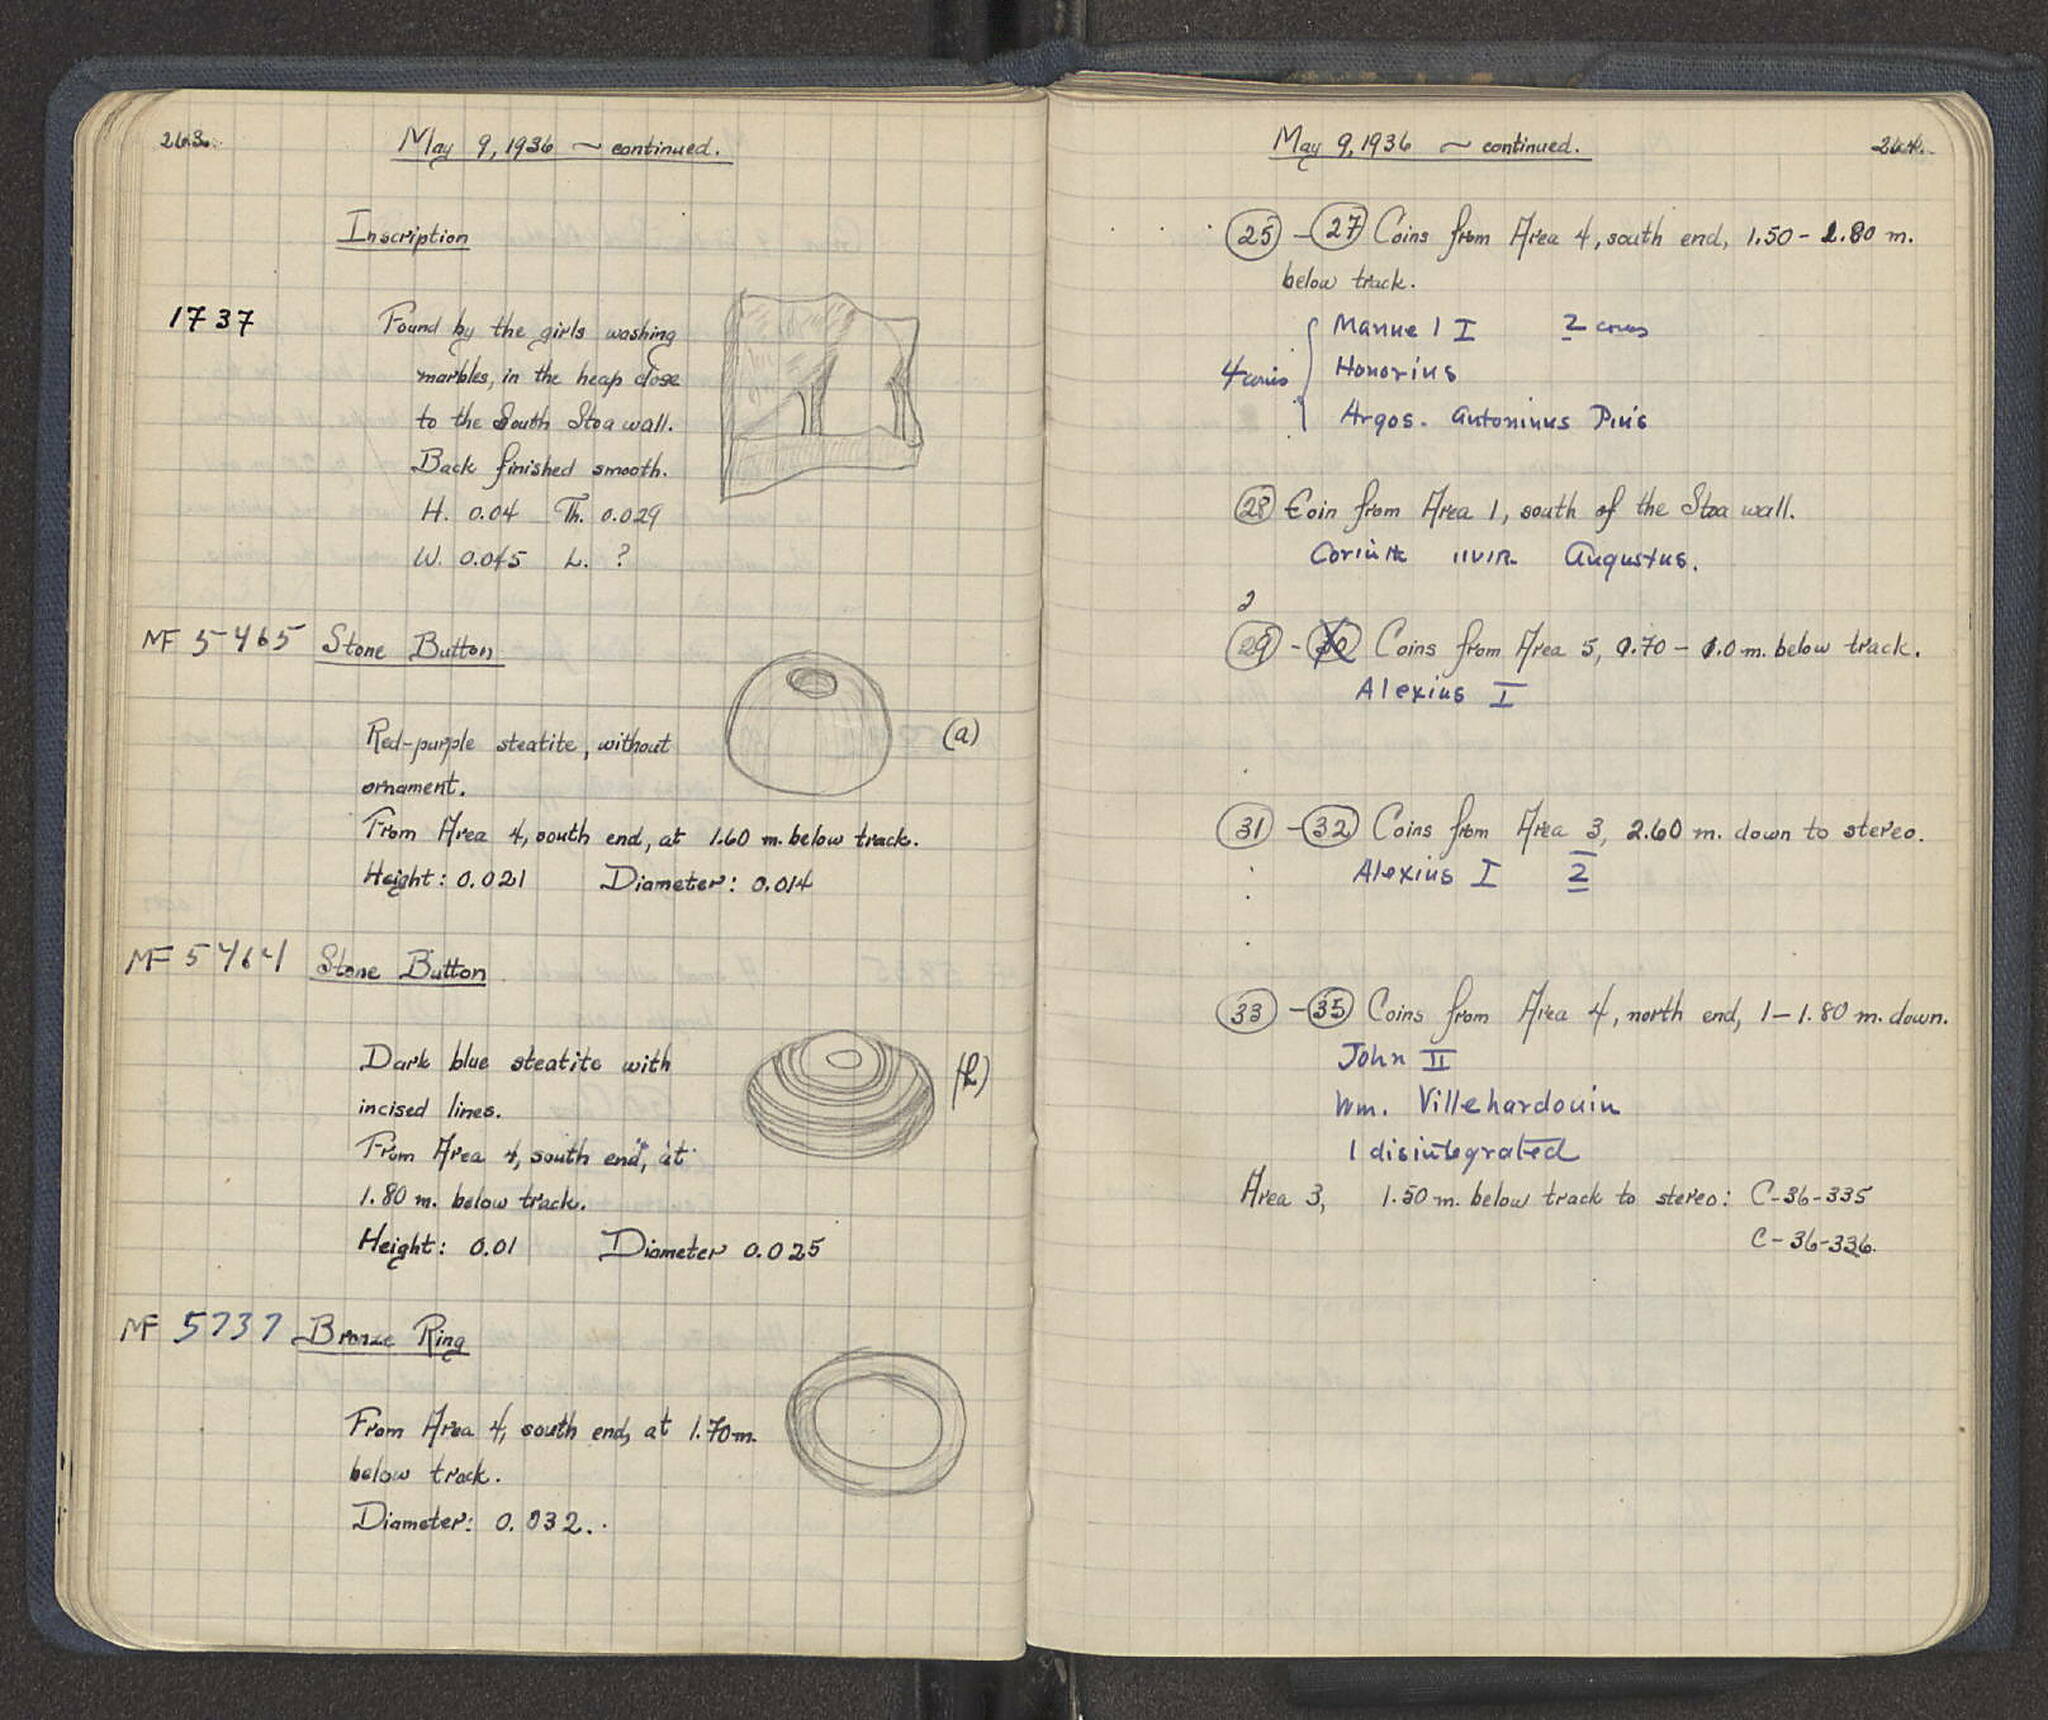 263.
May 9, 1936 ~ continued.
Inscription
1737
Found by the girls washing
marbles, in the heap close
to the South Stoa wall.
Back finished smooth.
H. 0.04 Th. 0.029
W. 0.045 L. ?
MF 5465 Stone Button
(a)
Red-purple steatite, without
ornament.
From Area 4, south end, at 1.60 m. below track.
Height: 0.021 Diameter: 0.014
MF 5464 Stone Button
Dark blue steatite with
(b)
incised lines.
From Area 4, south end, at
1.80 m. below track.
Height: 0.01 Diameter 0.025
MF 5737 Bronze Ring
From Area 4, south end, at 1.70 m.
below track.
Diameter: 0.032.
May 9, 1936 ~ continued.
264.
25 - 27 Coins from Area 4, south end, 1.50 - 2.80 m.
below track.
Manuel I 2 coins
4 coins Honorius
Argos. Antoninus Pius
28 Coin from Area 1, south of the Stoa wall.
Corinth IIVIR Augustus.
2
29 - 30 Coins from Area 5, 0.70 - 1.0 m. below track.
Alexius I
31 - 32 Coins from Area 3, 2.60 m. down to stereo.
Alexius I 2
33 - 35 Coins from Area 4, north end, 1 - 1.80 m. down.
John II
Wm. Villehardouin
1 disintegrated
Area 3, 1.50 m. below track to stereo: C-36-335
C-36-336.